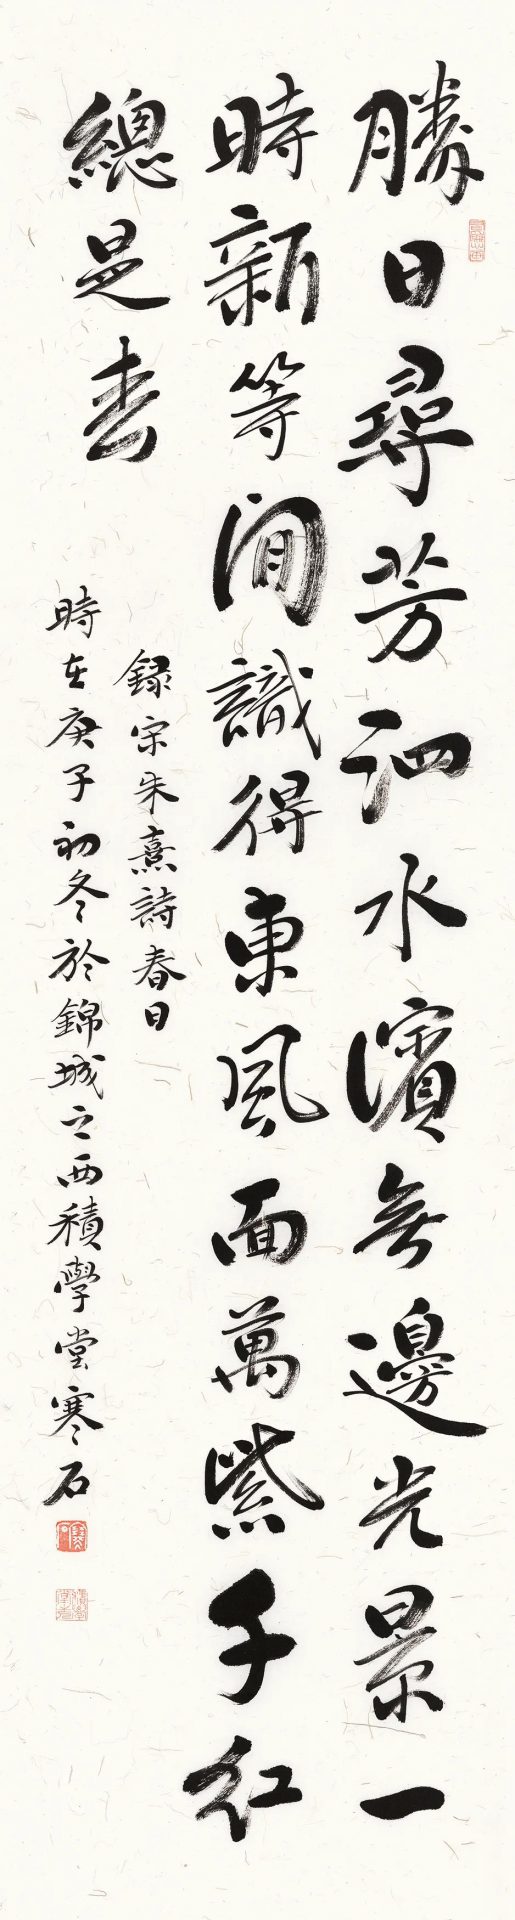 勝日尋芳泗水濱無邊光景一
時新等閒識得東風面萬紫千紅
總是春
録宋朱熹詩春日
時在庚子初冬於錦城之西積學堂寒石